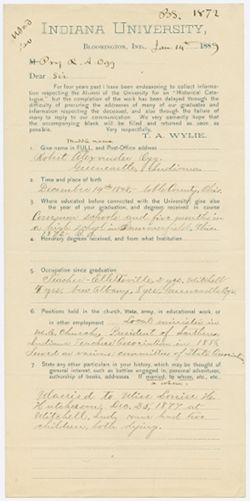 Obs. 1872
INDIANA UNIVERSITY,
BLOOMINGTON, IND., Jan 14th 1889
Prof R. A. Ogg
Dear Sir
For four years past I have been endeavoring to collect information respecting the Alumni of the University for an "Historical Catalogue," but the completion of the work has been delayed through the
difficulty of procuring the addresses of many of our graduates and
information respecting the deceased, and also through the failure of
many to reply to our communications. We very earnestly hope that
the accompanying blank will be filled and returned as soon as
possible. Very respectfully,
T. A. WYLIE.
middle name
1. Give name in FULL, and Post-Office address
Robert Alexander Ogg.
Greencastle, Indiana
2. Time and place of birth
December 19th
Ohio.
3. Where educated before connected with the University: give also
the year of your graduation, and degrees received in course
Common schools and five months in
a high school in Summerfield, Ohio
1872
4. Honorary degrees received, and from what Institution
5. Occupation since graduation
Teacher - Ellettsville 2 yrs, Mitchell
yrs, New Albany, 8 yrs, Greencastle
6. Positions held in the church, State, army, in educational work, or
in other employment Local minister in
M. E. Church; President of Southern
Indiana Teachers Association in 188
Served on various Committees of State Association
7. State any other particulars in your history, which may be thought of
general interest, such as battles engaged in, personal adventures,
authorship of books, addresses. If married, to whom, etc., etc.
& when:
Married to Miss Louise H.
Hutcheson, Dec. 25, 1877 at
Mitchell, Ind; have had two
children, both dying.